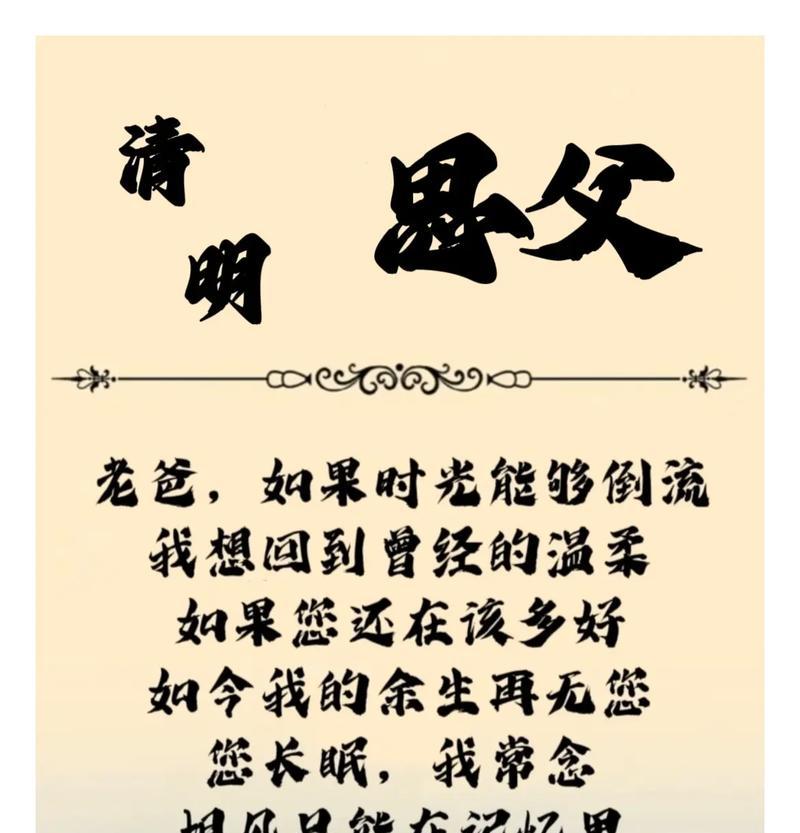 清明
思父
老爸，如果时光能够倒流
我想回到曾经的温柔
如果您还在该多好
如今我的余生再无您
您长眠，我常念
相见只能在记忆里